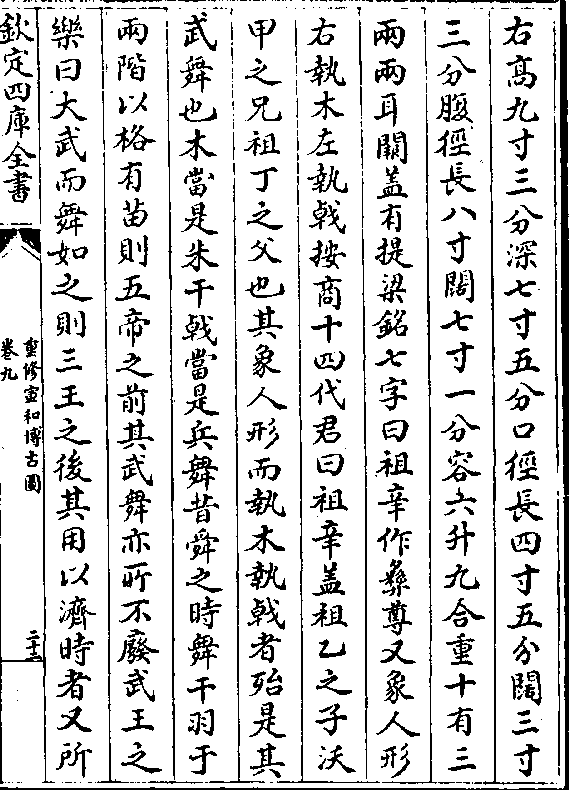 右高九寸三分深七寸五分口徑長四寸五分闊三寸
三分腹徑長八寸闊七寸一分容六升九合重十有三
兩兩耳闕蓋有提梁銘七字曰祖辛作彝尊又象人形
右執木左執戟按商十四代君曰祖辛蓋祖乙之子沃
甲之兄祖丁之父也其象人形而執木執戟者殆是其
武舞也木當是朱干戟當是兵舞昔舜之時舞干羽于
兩階以格有苗則五帝之前其武舞亦所不廢武王之
樂曰大武而舞如之則三王之後其用以濟時者又所
欽定四庫全書
重修宣和博古圖
卷九
二十二